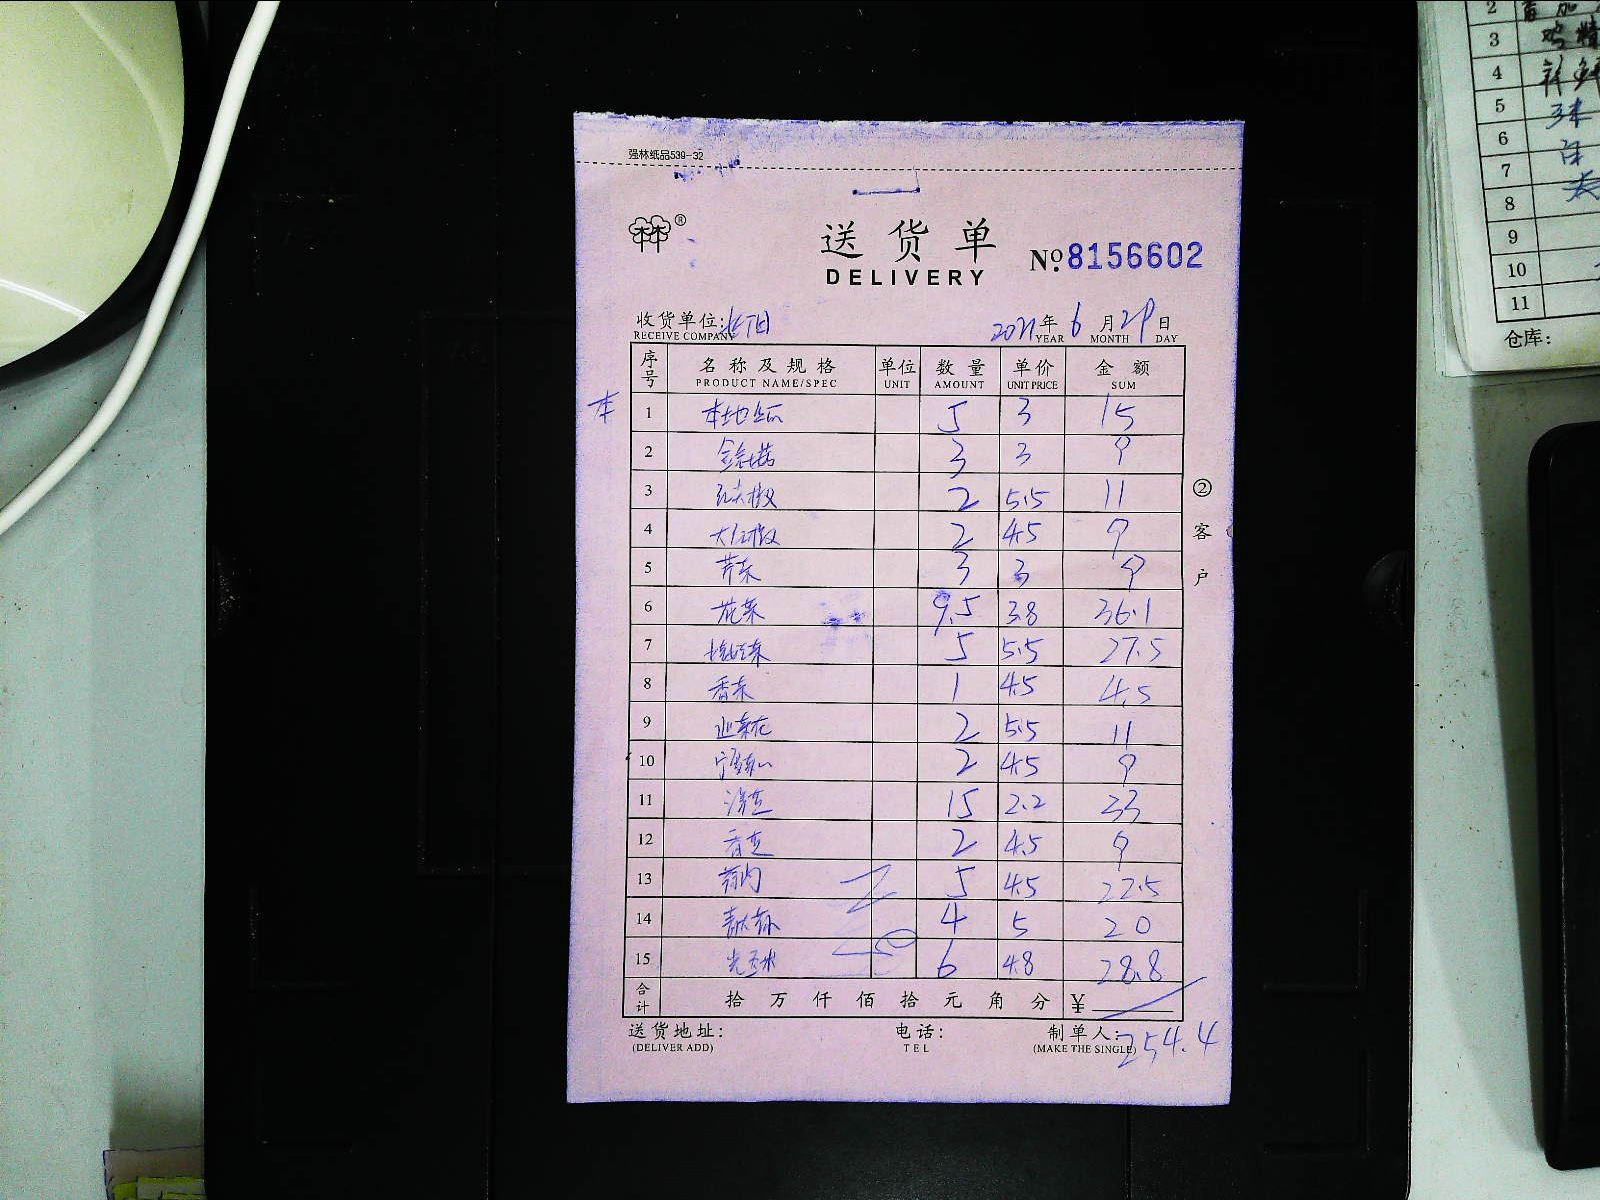 强林纸品539-32
送货单
DELIVERY
No.8156602
收货单位:
RECEIVE COMPANY
2021年6月29日
YEAR MONTH DAY
序号 名称及规格 单位 数量 单价 金额
PRODUCT NAME/SPEC UNIT AMOUNT UNIT PRICE SUM
本
1 本地 5 3 15
2 3 3 9
3 2 5.5 11
4 大红椒 2 4.5 9
5 芹菜 3 3 9
6 花菜 9.5 3.8 36.1
7 5 5.5 27.5
8 香菜 1 4.5 4.5
9 2 5.5 11
10 2 4.5 9
11 15 2.2 33
12 2 4.5 9
13 5 4.5 22.5
14 4 5 20
15 6 4.8 28.8
合计 拾万仟佰拾元角分 ¥
254.4
送货地址: 电话: 制单人:
(DELIVER ADD) TEL (MAKE THE SINGLE)
②客户
2
3 鸡精
4
5
6
7
8
9
10
11
仓库: